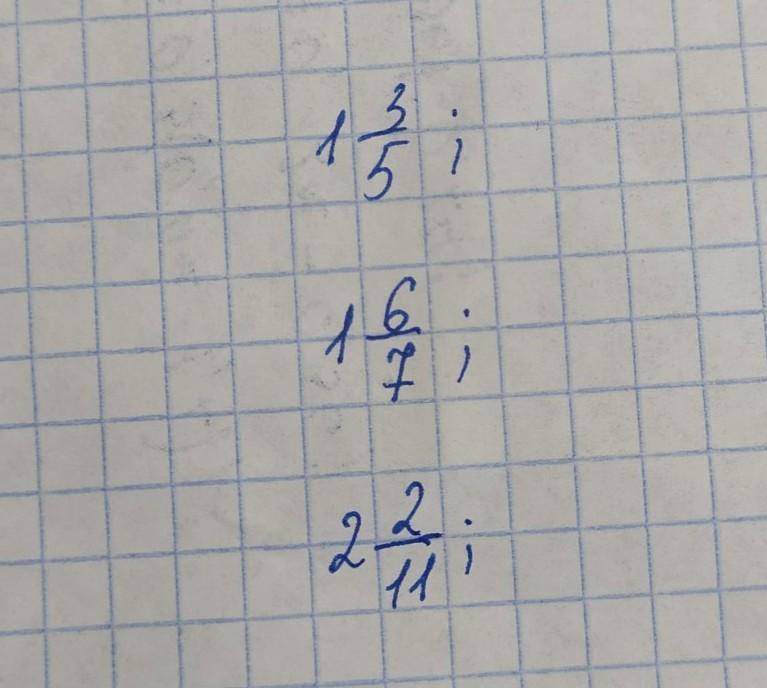 1 3/5 ;
1 6/7 ;
2 2/11 ;